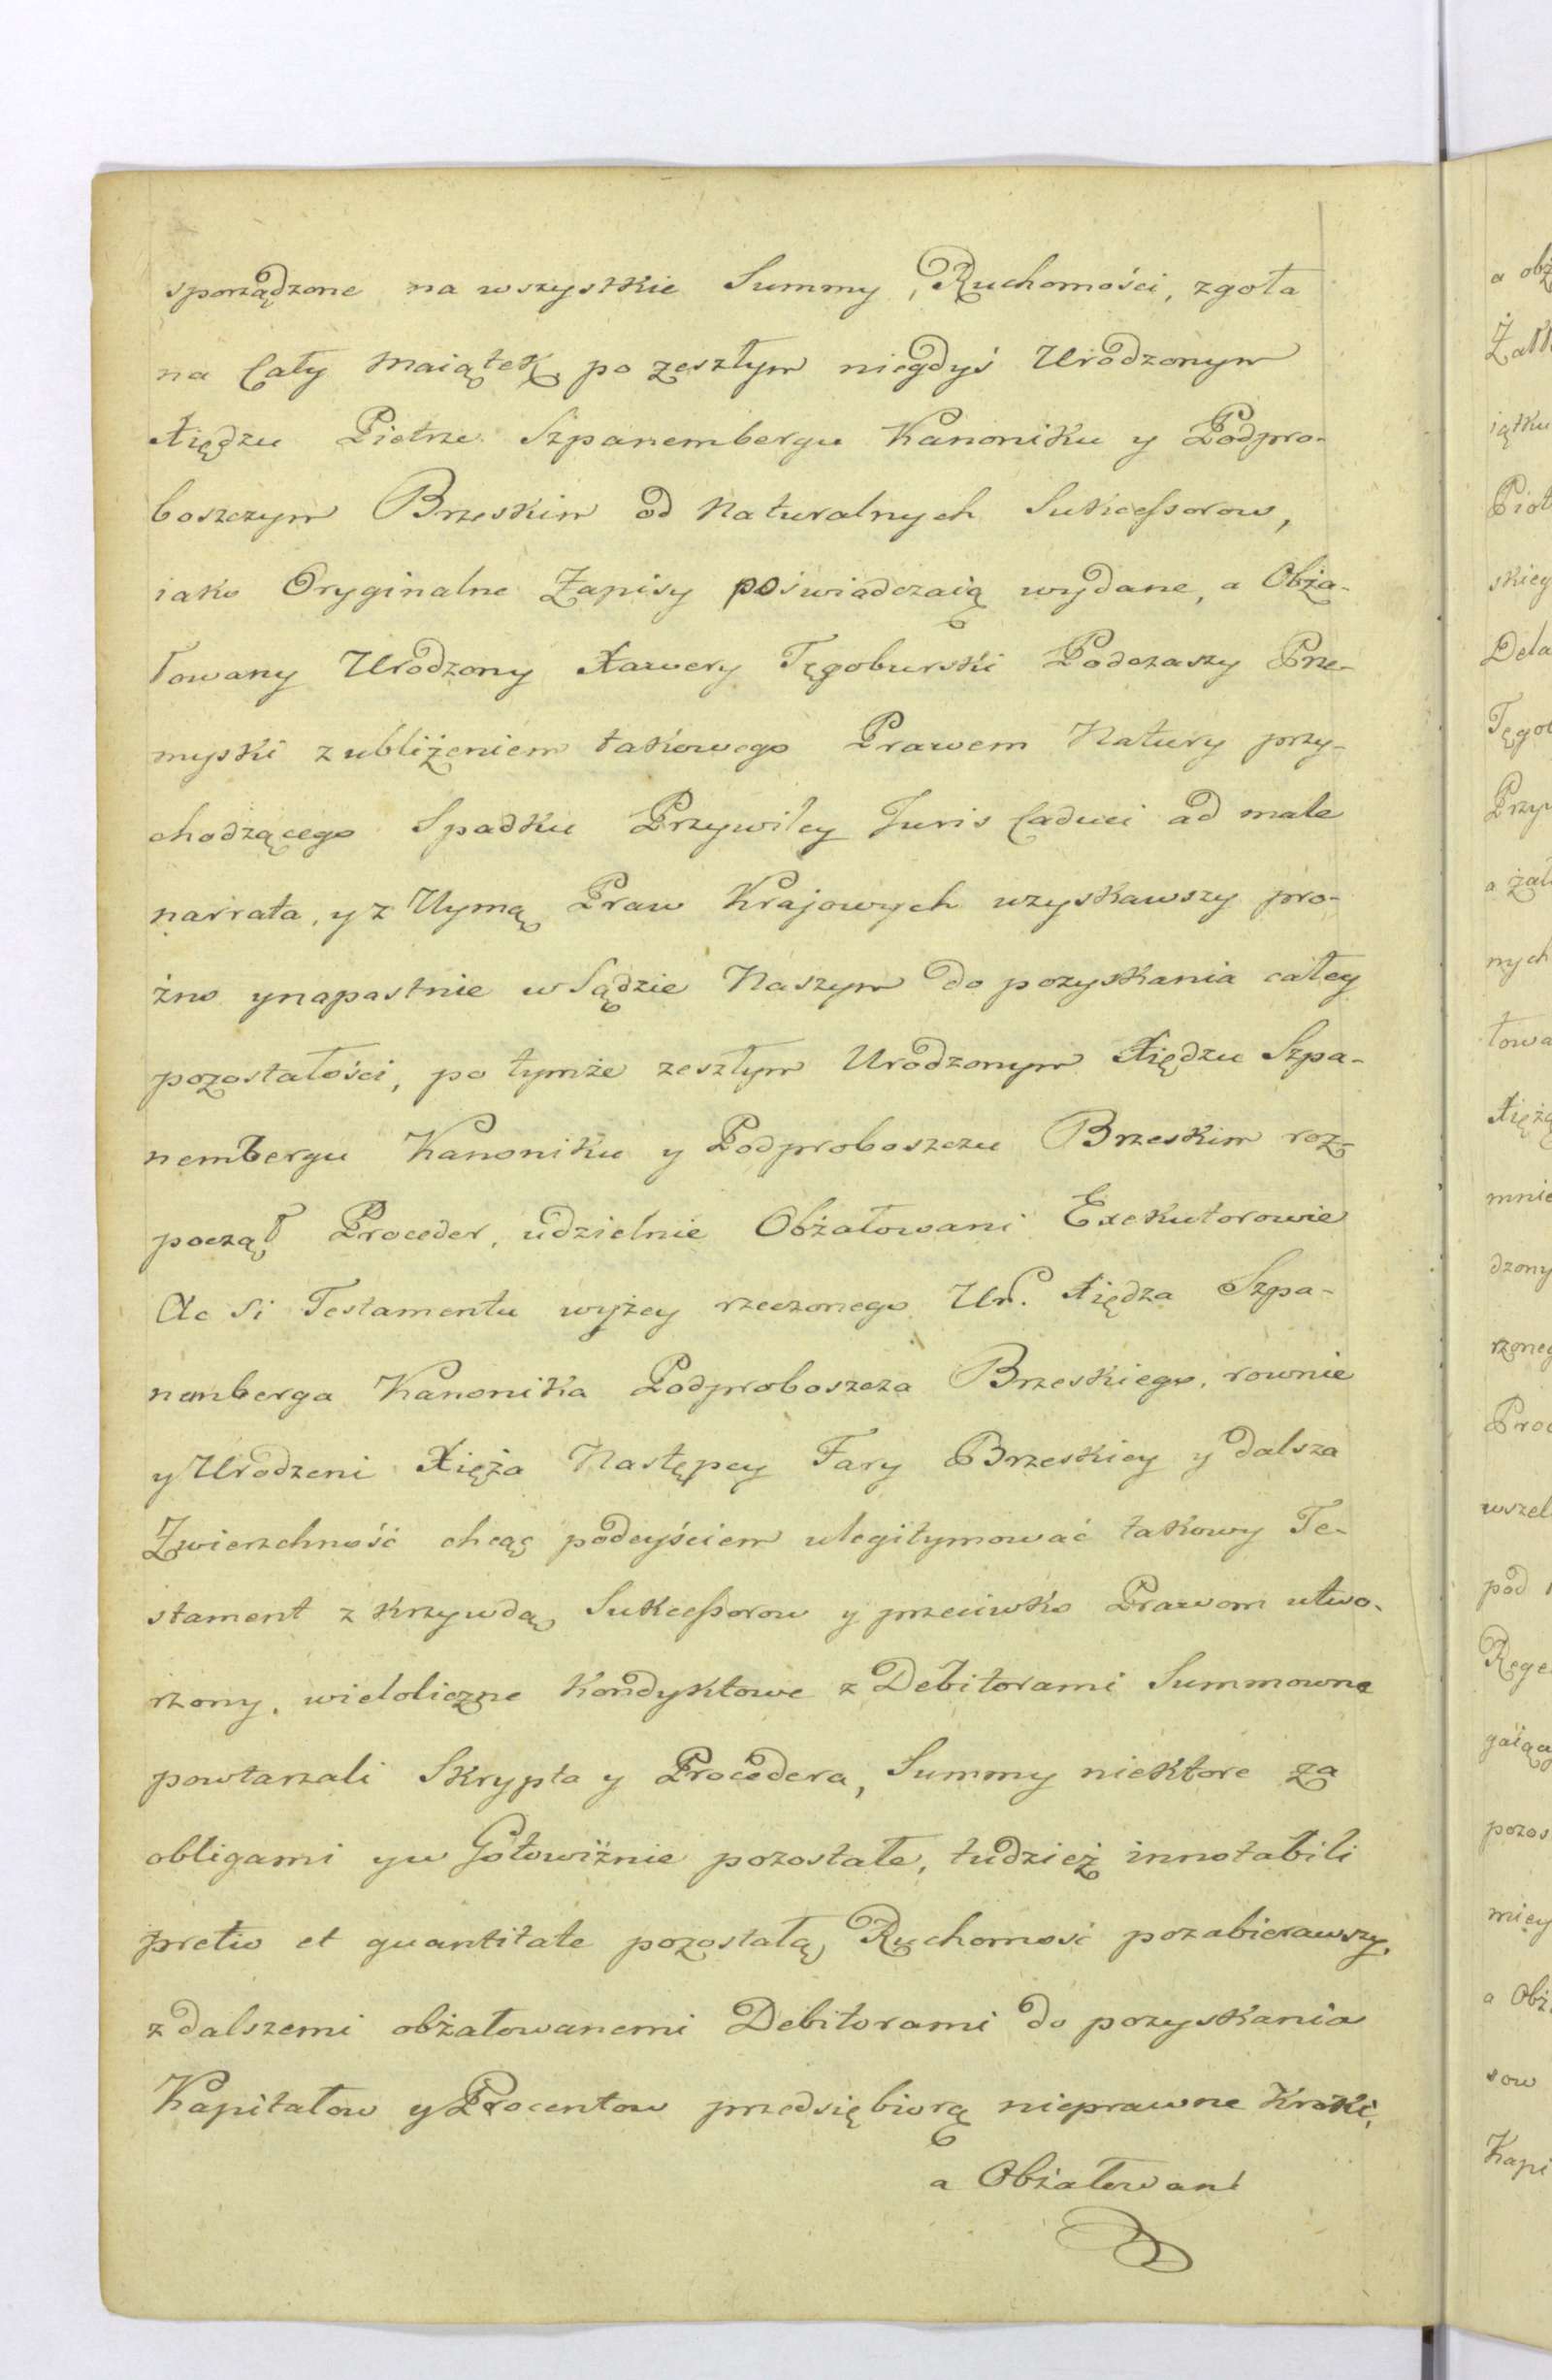 sporządzone na wszystkie Summy, Ruchomości, zgoła
na Cały Maiątek po zeszłym niegdyś Urodzonym
Xiędzu Pietrze Szpanembergu Kanoniku y Podpro-
boszczym Brzeskim od Naturalnych Sukcessorow,
iako Oryginalne Zapisy poświadczaią wydane, a Obża-
łowany Urodzony Xawery Tęgoburski Podczaszy Prze-
myski z ubliżeniem takowego Prawem Natury przy-
chodzącego Spadku Przywiley Juris Caduci ad male
narrata, y z Uymą Praw Krajowych uzyskawszy pro-
żno y napastnie w Sądzie Naszym do pozyskania całey
pozostałości, po tymże zeszłym Urodzonym Xiędzu Szpa-
nembergu Kanoniku y Podproboszczu Brzeskim roz-
począł Proceder, udzielnie Obżałowani Exekutorowie
Ac Si Testamentu wyżey rzeczonego Ur. Xiędza Szpa-
nemberga Kanonika Podproboszcza Brzeskiego, rownie
y Urodzeni Xięża Następcy Fary Brzeskiey y dalsza
Zwierzchność chcąc podeyściem ulegitymować takowy Te-
stament z krzywdą Sukcessorow y przeciwko Prawom utwo-
rzony, wieloliczne Kondyktowe z Debitorami Summowne
powtarzali Skrypta y Procedera, Summy niektore za
obligami y w Gotowiźnie pozostałe, tudzież innotabili
pretio et quantitate pozostałą Ruchomość pozabierawszy,
z dalszemi obżałowanemi Debitorami do pozyskania
Kapitałow y Procentow przedsiębiorą nieprawne Kroki,
a Obżałowani
a obż
Żałł
iątku
Piot
skieg
Dela
Tęgob
Przy
a żał
nych
łowa
Xiężą
mnie
dzony
rzoneg
Proc
wszel
pod
Rege
gaiąc
pozos
miey
a Obż
sow
Kapi